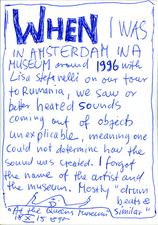 WHEN I WAS
IN AMSTERDAM IN A
MUSEUM around 1996 with
Lisa Stefanelli on our tour
to Rumania, we saw or
better heared sounds
coming out of objects
unexplicable, meaning one
could not determine how the
sound was created. I forgot
the name of the artist and
the museum. Mostly "drum
beats & similar"
"At the Queens Museum"